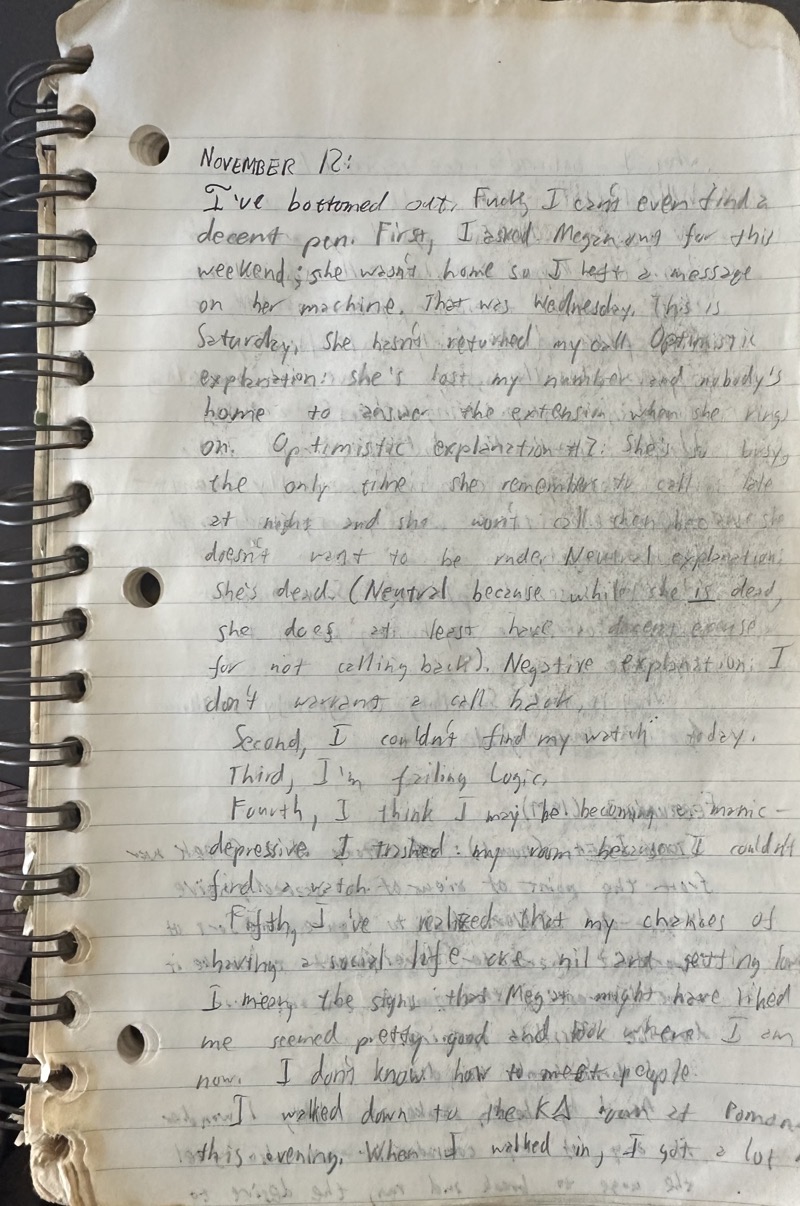 NOVEMBER 12:
I've bottomed out. Fuck, I can't even find a
decent pen. First, I asked Megan out for this
weekend; she wasn't home so I left a message
on her machine. That was Wednesday. This is
Saturday. She hasn't returned my call. Optimistic
explanation: she's lost my number and nobody's
home to answer the extension when she rings
on. Optimistic explanation #2: She's so busy,
the only time she remembers to call is late
at night and she won't call then because she
doesn't want to be rude. Neutral explanation:
She's dead. (Neutral because while she is dead,
she does at least have a decent excuse
for not calling back). Negative explanation: I
don't warrant a call back.
Second, I couldn't find my watch today.
Third, I'm failing Logic.
Fourth, I think I may be becoming a manic-
depressive. I trashed my room because I couldn't
find a watch.
Fifth, I've realized that my chances of
having a social life are nil and getting
I mean, the signs that Megan might have liked
me seemed pretty good and look where I am
now. I don't know how to meet people.
I walked down to the KΔ at
this evening. When I walked in, I got a lot